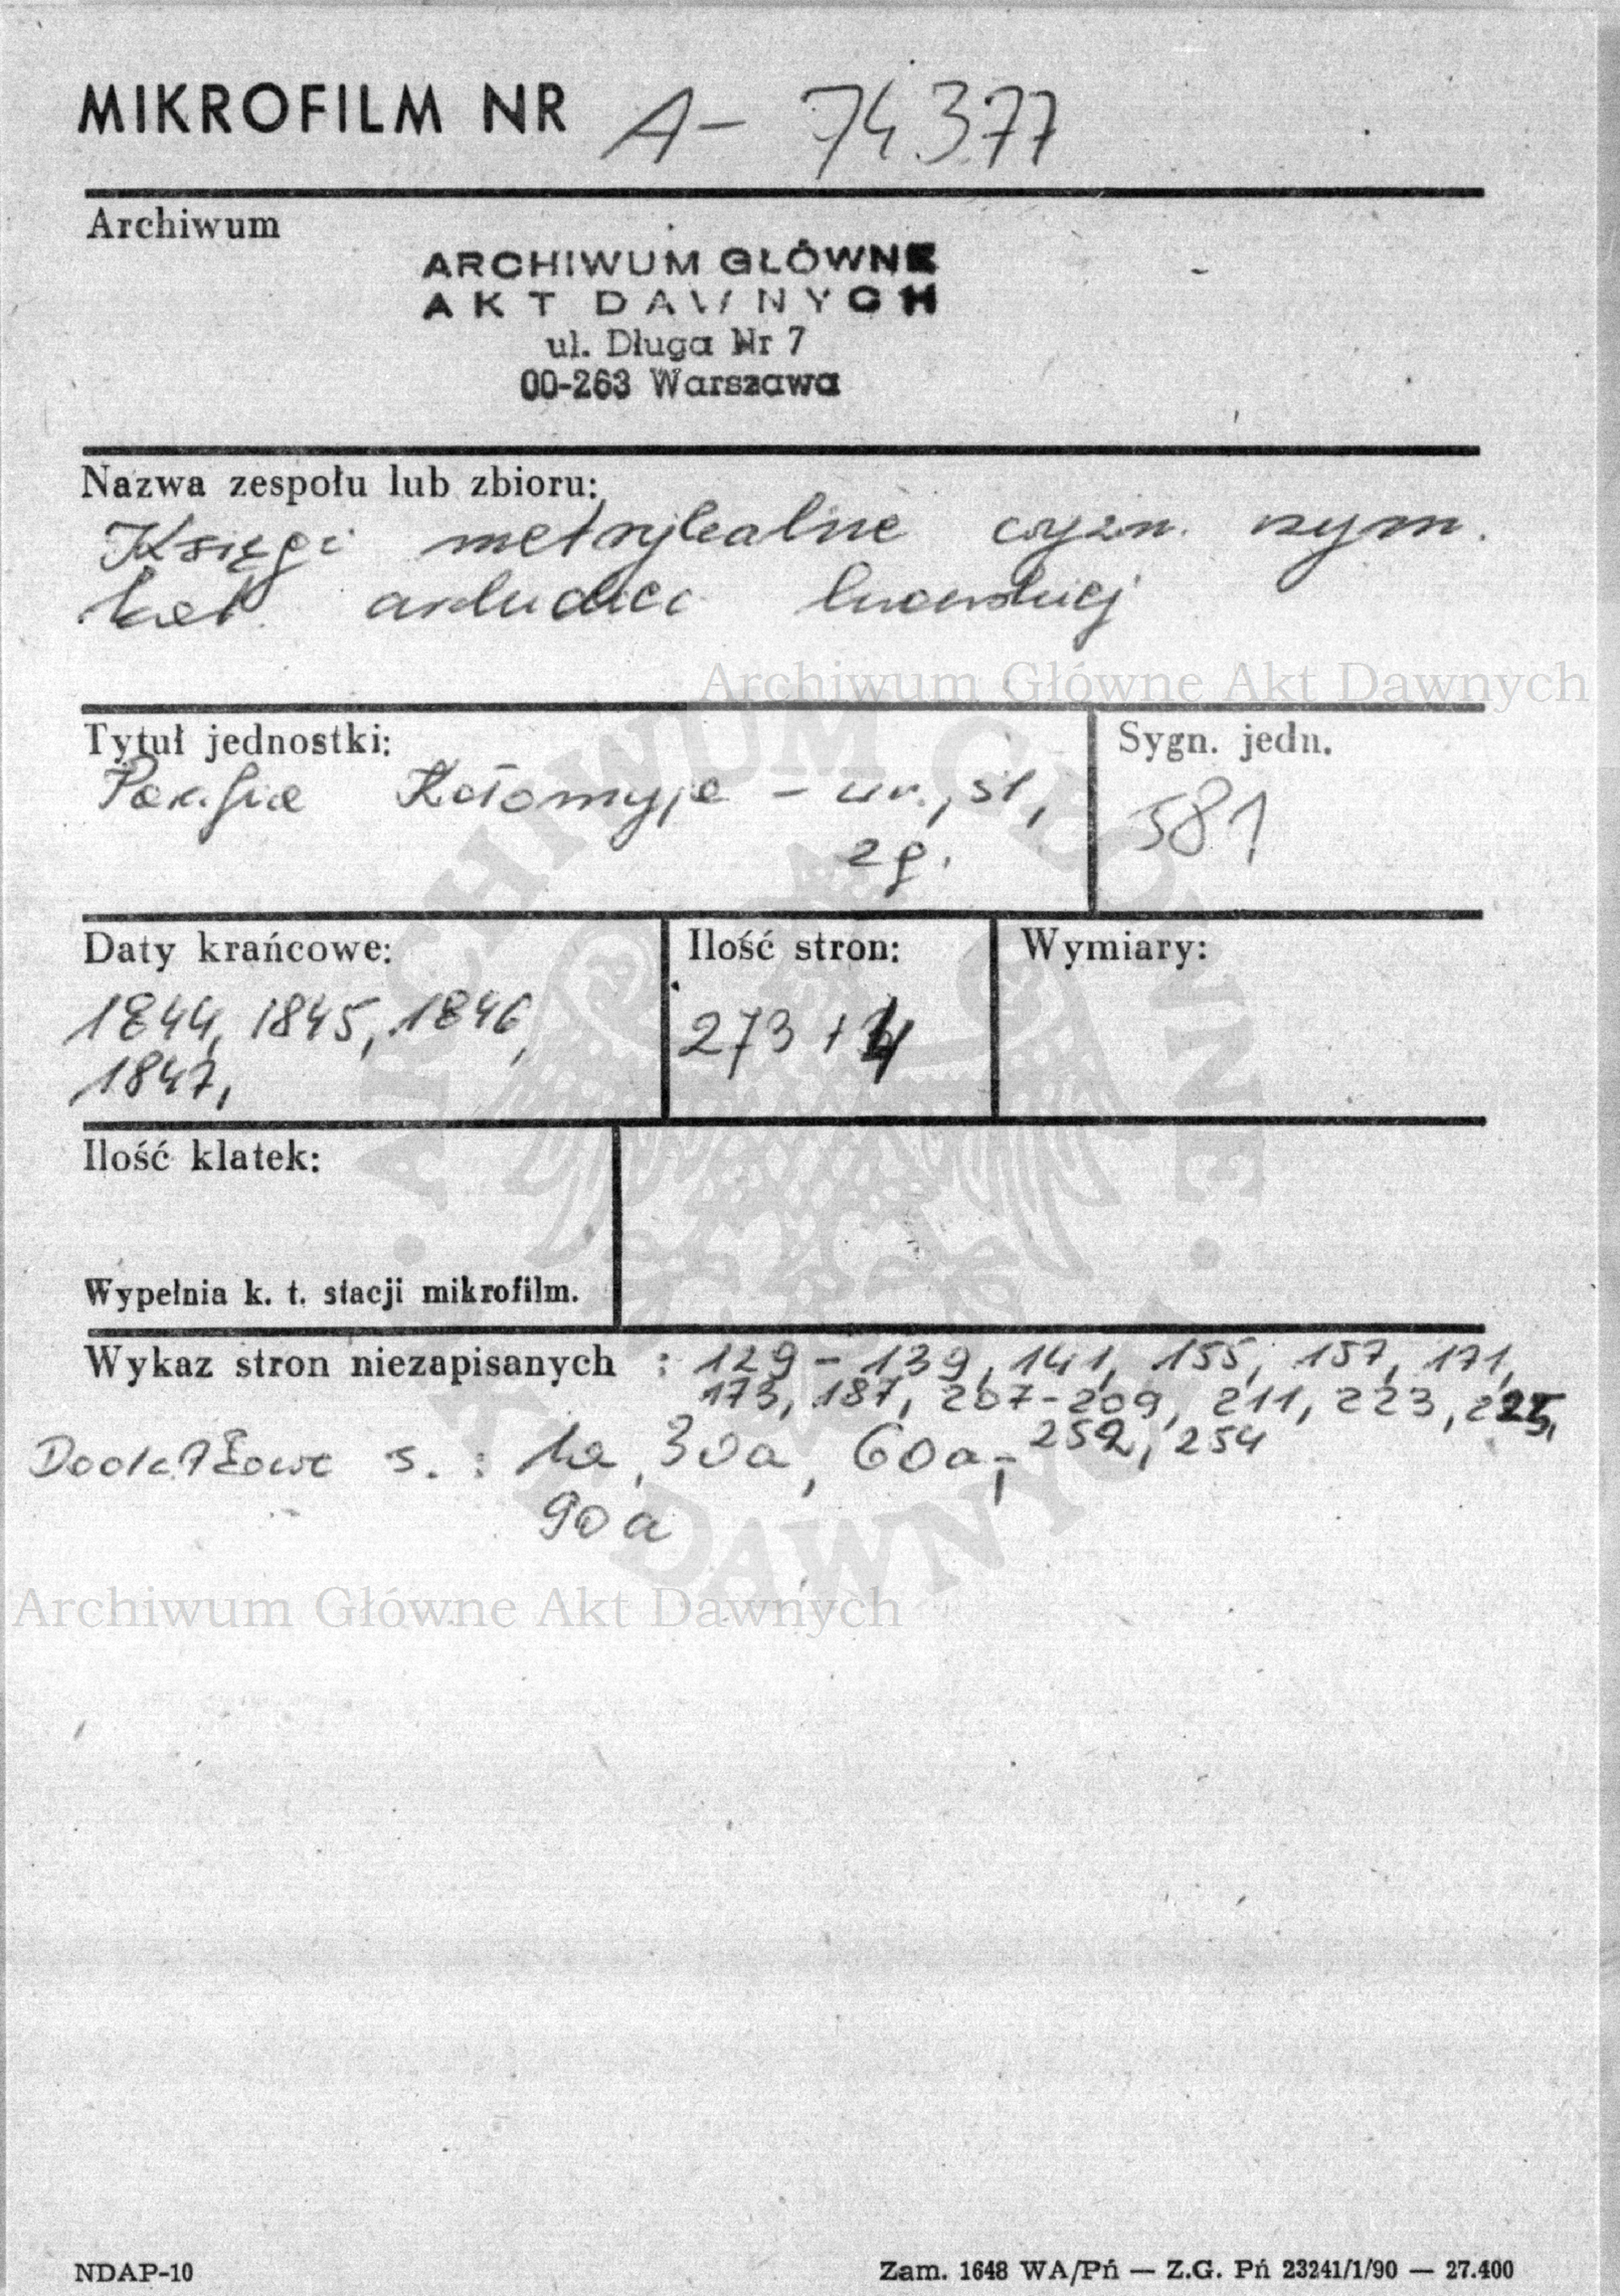 MIKROFILM NR A- 74377
Archiwum
ARCHIWUM GŁÓWNE
AKT DAWNYCH
ul. Długa Nr 7
00-263 Warszawa
Nazwa zespołu lub zbioru:
Księgi metrykalne wyzn. rzym.
kat. lwowskiej
Archiwum Główne Akt Dawnych
Tytuł jednostki:
Sygn. jedn.
Parafia Kołomyja - ur., śl.,
zg.
581
Daty krańcowe:
Ilość stron:
Wymiary:
1844, 1845, 1846,
1847,
273 + 4
Ilość klatek:
Wypełnia k. t. stacji mikrofilm.
Wykaz stron niezapisanych : 129 - 139, 141, 155, 157, 171,
173, 187, 207-209, 211, 223, 225,
252, 254
Dodatkowe s. : 1a, 30a, 60a,
90a
ARCHIWUM GŁÓWNE AKT DAWNYCH
Archiwum Główne Akt Dawnych
NDAP-10
Zam. 1648 WA/Pń — Z.G. Pń 23241/1/90 — 27.400